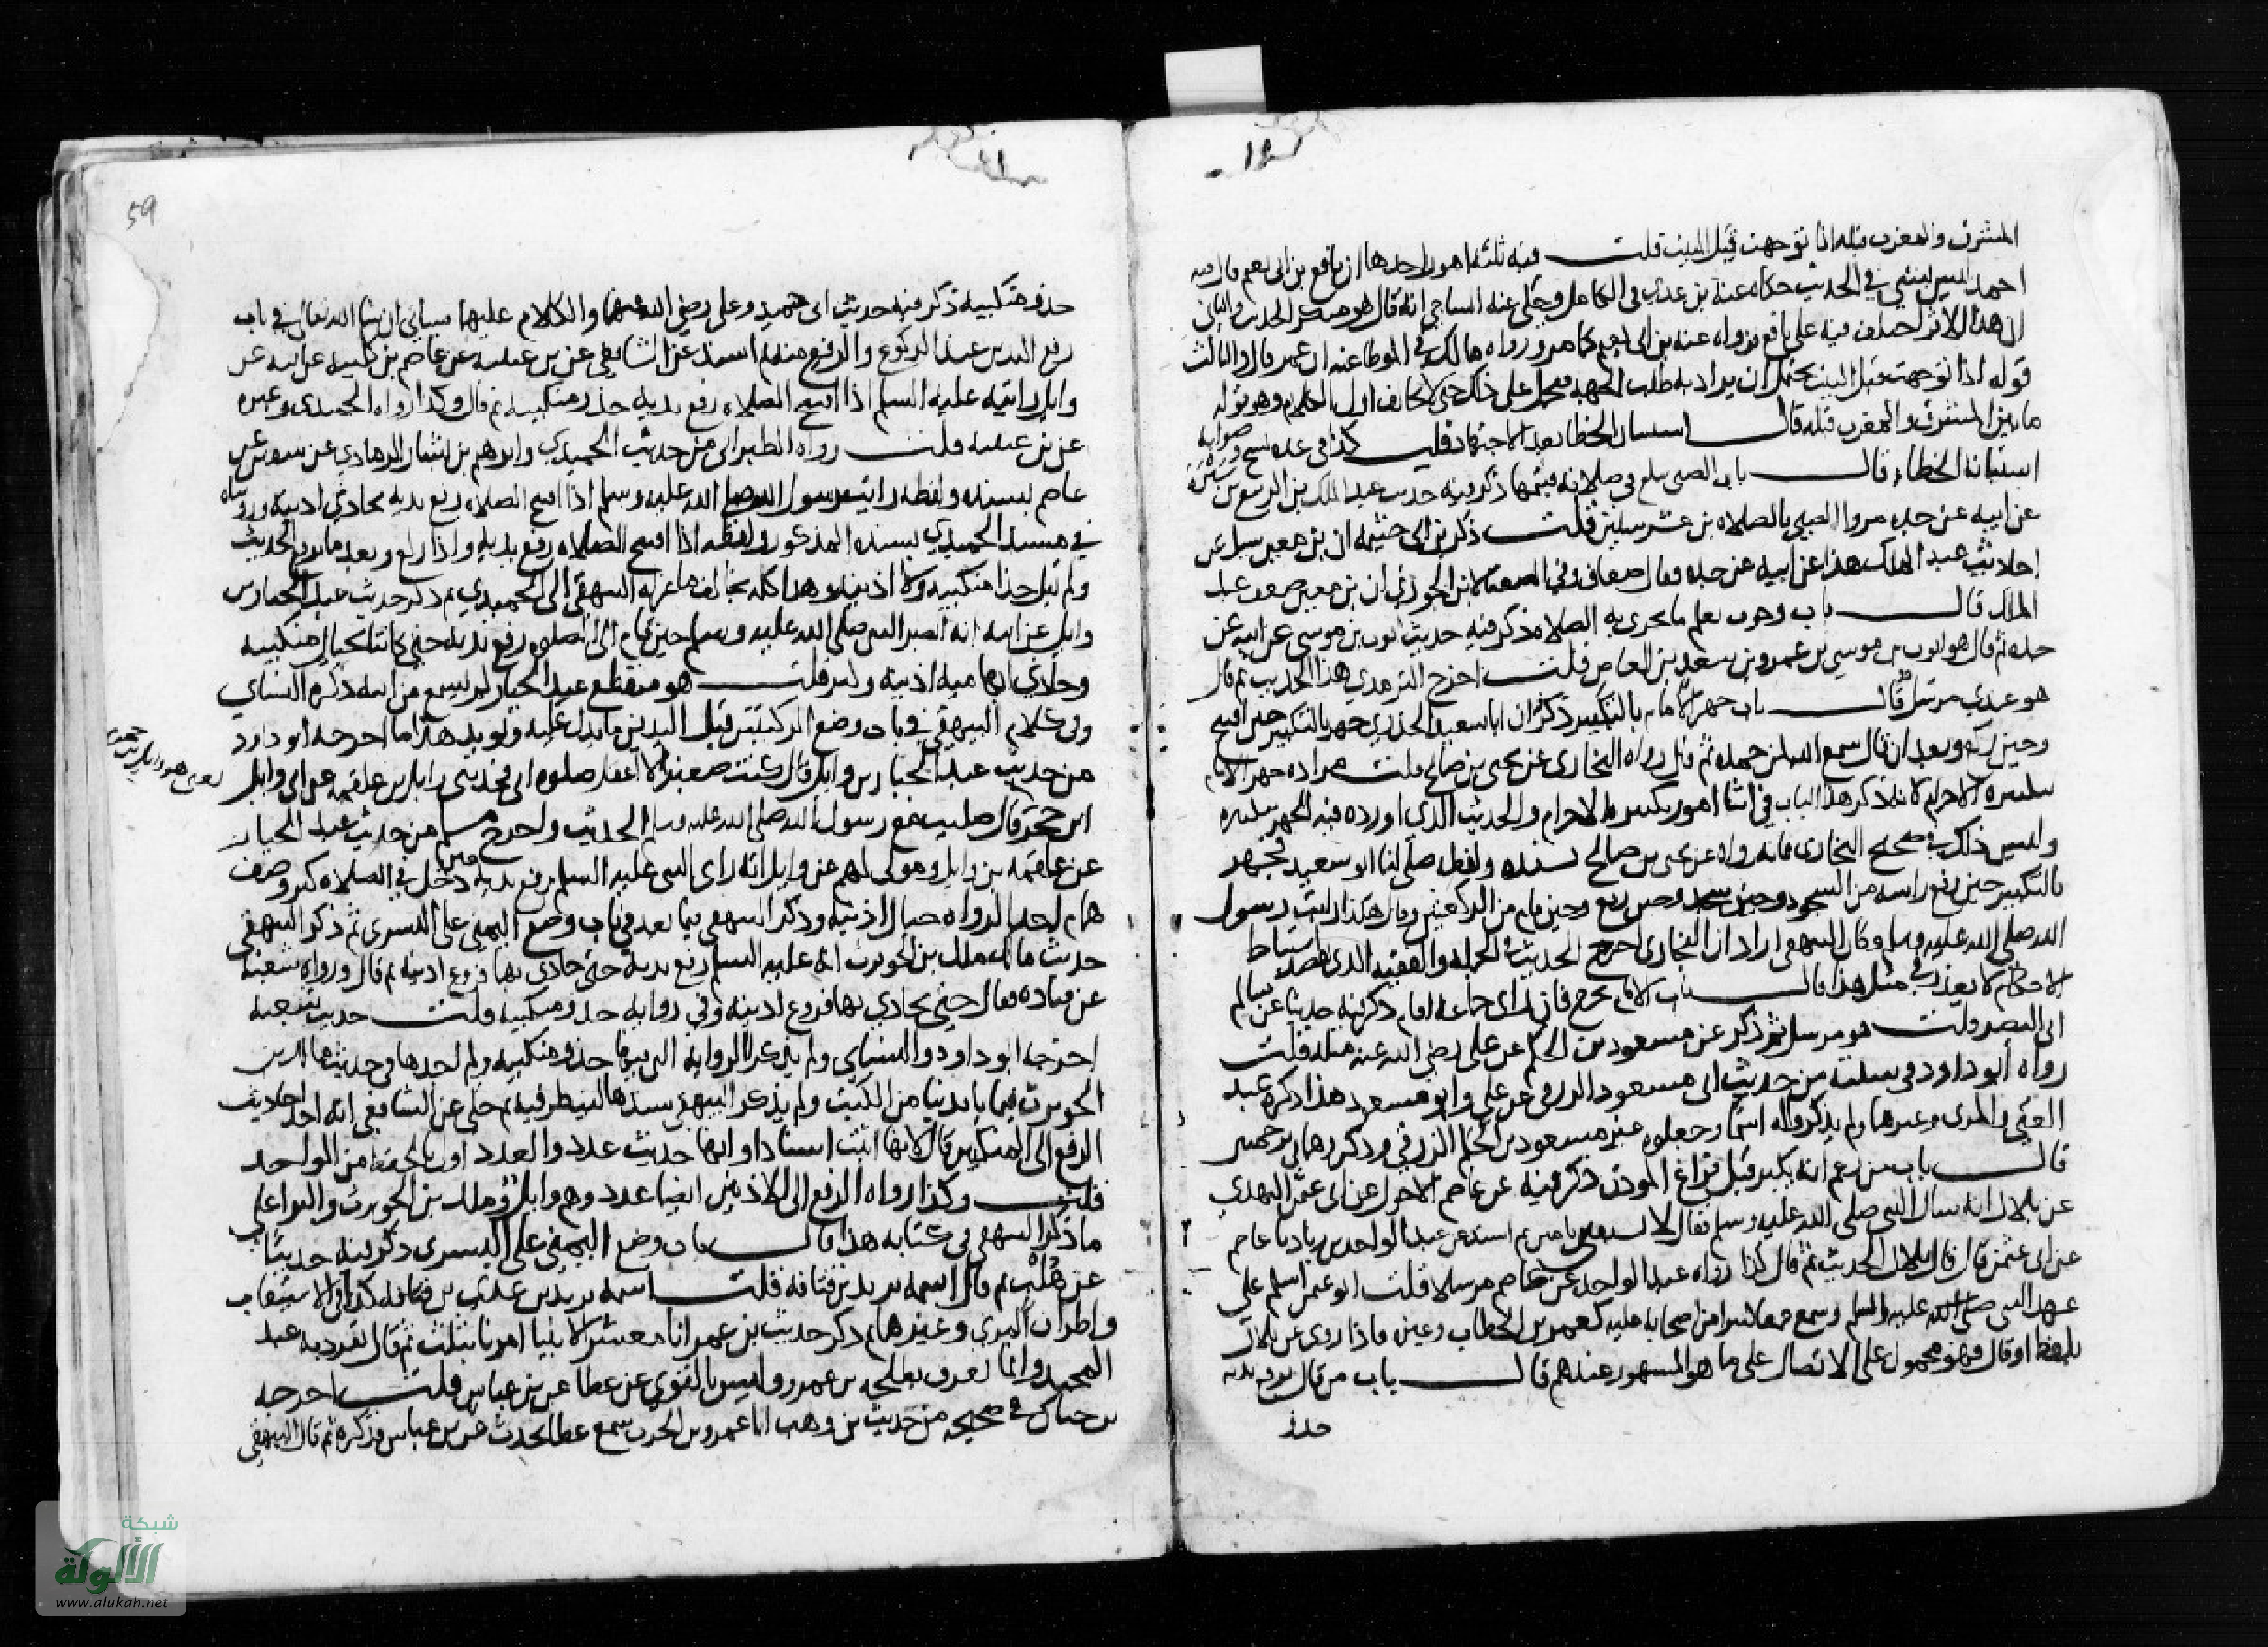 المشرق والمغرب قبله اذا توجهت قبل البيت قلت فيه ثلثه امور احدها ان نافع بن ابى نعيم قال فيه
احمد ليس بشى في الحديث حكاه عنه بن عدى فى الكامل وحكى عنه الساجى انه قال هو منكر الحديث والثانى
ان هذا الاثر اختلف فيه على نافع فرواه عنه بن ابى نعيم كما مر ورواه مالك فى الموطا عنه ان عمر قال والثالث
قوله اذا توجهت قبل البيت يحتمل ان يراد به طلب الجهه فيحمل على ذلك حتى لا يخالف اول الكلام وهو قوله
ما بين المشرق والمغرب قبله قال استبيان الخطا بعد الاجتهاد قلت كذا فى عده نسخ وصوابه
استبانه الخطاء قال باب الصبى يبلغ فى صلاته فيتمها ذكر فيه حديث عبد الملك بن الربيع بن سبره
عن ابيه عن جده مروا الصبى بالصلاه بن عشر سنين قلت ذكر بن ابى خيثمه ان بن معين سئل عن
احاديث عبد الملك هذا عن ابيه عن جده فقال ضعاف وفى الضعفا لابن الجوزى ان بن معين ضعف عبد
الملك قال باب وجوب تعلم ما يجزى به الصلاه ذكر فيه حديث ايوب بن موسى عن ابيه عن
جده ثم قال هو ايوب بن موسى بن عمرو بن سعيد بن العاص قلت اخرج الترمذي هذا الحديث ثم قال
هو عندى مرسل قال باب جهر الامام بالتكبير ذكر ان ابا سعيد الخدرى جهر بالتكبير حين افتتح
وحين ركع وبعد ان قال سمع الله لمن حمده ثم قال رواه البخارى عن يحيى بن صالح قلت مراده جهر الامام
بتكبيره الاحرام لانه ذكر هذا الباب في اثنا امور تكبيره الاحرام والحديث الذى اورده فيه الجهر بتكبيره
وليس ذلك في صحيح البخارى فانه رواه عن يحيى بن صالح بسنده ولفظه صلى لنا ابو سعيد فجهر
بالتكبير حين رفع راسه من السجود وحين سجد وحين رفع وحين قام من الركعتين وقال هكذا رايت رسول
الله صلى الله عليه وسلم وكان البيهقى اراد ان البخارى اخرج الحديث فى الجمله والفقيه الذى قصد استنباط
الاحكام لا يعذر فى مثل هذا قال باب الامام يخرج فان راى جماعه اقام ذكر فيه حديثا عن سالم
ابى النضر قلت هو مرسل ثم ذكر عن مسعود بن الحكم عن على رضى الله عنه مثله قلت
رواه أبو داود فى سننه من حديث ابى مسعود الزرقى عن على وابو مسعود هذا ذكره عبد
الغنى والمزى وغيرهما ولم يذكروا له اسما وجعلوه غير مسعود بن الحكم الزرقى وذكرهما بن خمير
قال باب من زعم انه يكبر قبل فراغ المؤذن ذكر فيه عن عاصم الاحول عن ابى عثمن النهدى
عن بلال انه سال النبى صلى الله عليه وسلم فقال لا تسبقنى بامين ثم اسند عن عبد الواحد بن زياد نا عاصم
عن ابى عثمن قال قال بلال الحديث ثم قال كذا رواه عبد الواحد عن عاصم مرسلا قلت ابو عثمن اسلم على
عهد النبى صلى الله عليه وسلم وسمع جمعا كثيرا من صحابه عليه كعمر بن الخطاب وغيره فاذا روى عن بلال
بلفظ او قال فهو محمول على الاتصال على ما هو المشهور عندهم قال باب من قال يرفع يديه
حذو
59
حذو منكبيه ذكر فيه حديث ابى حميد وعلى رضى الله عنهما والكلام عليهما سياتى ان شا الله تعالى في باب
رفع اليدين عند الركوع والرفع منه ثم اسند عن الشافعى عن بن عيينه عن عاصم بن كليب عن ابيه عن
وايل رايته عليه السلم اذا افتتح الصلاه رفع يديه حذو منكبيه ثم قال وكذا رواه الحميدى وغيره
عن بن عيينه قلت رواه الطبرانى من حديث الحميدى وابرهيم بن بشار الرمادى عن سفين عن
عاصم بسنده ولفظه رايت رسول الله صلى الله عليه وسلم اذا افتتح الصلاه رفع يديه يحاذي اذنيه وروياه
في مسند الحميدي بسنده المذكور ولفظه اذا افتتح الصلاه رفع يديه واذا ركع وبعد ما يرفع الحديث
ولم يقل حذا منكبيه ولا اذنيه وهذا كله يخالف ما عزاه البيهقى الى الحميدي ثم ذكر حديث عبد الجبار بن
وايل عن ابيه انه ابصر النبى صلى الله عليه وسلم حين قام الى الصلوه رفع يديه حتى كانتا بحيال منكبيه
وحاذى ابهاميه اذنيه ولبر قلت هو منقطع عبد الجبار لم يسمع من ابيه ذكره النساى
وفى كلام البيهقى في باب وضع الركبتين قبل اليدين ما يدل عليه ويويد هذا ما اخرجه ابو داود
من حديث عبد الجبار بن وايل قال كنت صغيرا لا اعقل صلوه ابى فحدثنى وايل بن علقمه عن ابى وايل
لعله هو وايل بن حجر
ابن حجر قال صليت مع رسول الله صلى الله عليه وسلم الحديث واخرج مسلم من حديث عبد الجبار
عن علقمه بن وايل ومولى لهم عن وايل انه راى النبى عليه السلم رفع يديه حين دخل في الصلاه كبر وصف
همام احد الرواه حيال اذنيه وذكر البيهقى فيما بعد فى باب وضع اليمنى على اليسرى ثم ذكر البيهقى
حديث مالك بن الحويرث انه عليه السلم رفع يديه حتى حاذى بهما فروع اذنيه ثم قال ورواه شعبه
عن قتاده فقال حتى يحاذي بهما فروع اذنيه وفي روايه حذو منكبيه قلت حديث شعبه
اخرجه ابو داود والنسائي ولم يذكرا الروايه التى فيها حذو منكبيه ولم اجدها فى حديث مالك بن
الحويرث فيما بايدينا من الكتب ولم يذكر البيهقى سندها لينظر فيه ثم حكى عن الشافعى انه اخذ احاديث
الرفع الى المنكبين قال لانها اثبت اسنادا وانها حديث عدد والعدد اولى بالحفظ من الواحد
قلت وكذا رواه الرفع الى الاذنين ايضا عدد وهم وايل وملك بن الحويرث والبرا على
ما ذكر البيهقى فى كتابه هذا قال باب وضع اليمنى على اليسرى ذكر فيه حديثا
عن هلب ثم قال اسمه يزيد بن قنافه قلت اسمه يزيد بن عدى بن قنافه كذا فى الاستيعاب
واطراف المزي وغيرهما ثم ذكر حديث بن عمر انا معشر الانبيا امرنا بثلث ثم قال تفرد به عبد
المجيد وانما يعرف بطلحه بن عمرو وليس بالقوي عن عطا عن بن عباس قلت اخرجه
بن حبان في صحيحه من حديث بن وهب انا عمرو بن الحرث سمع عطا يحدث عن بن عباس فذكره ثم قال البيهقى
شبكة
الألوكة
www.alukah.net